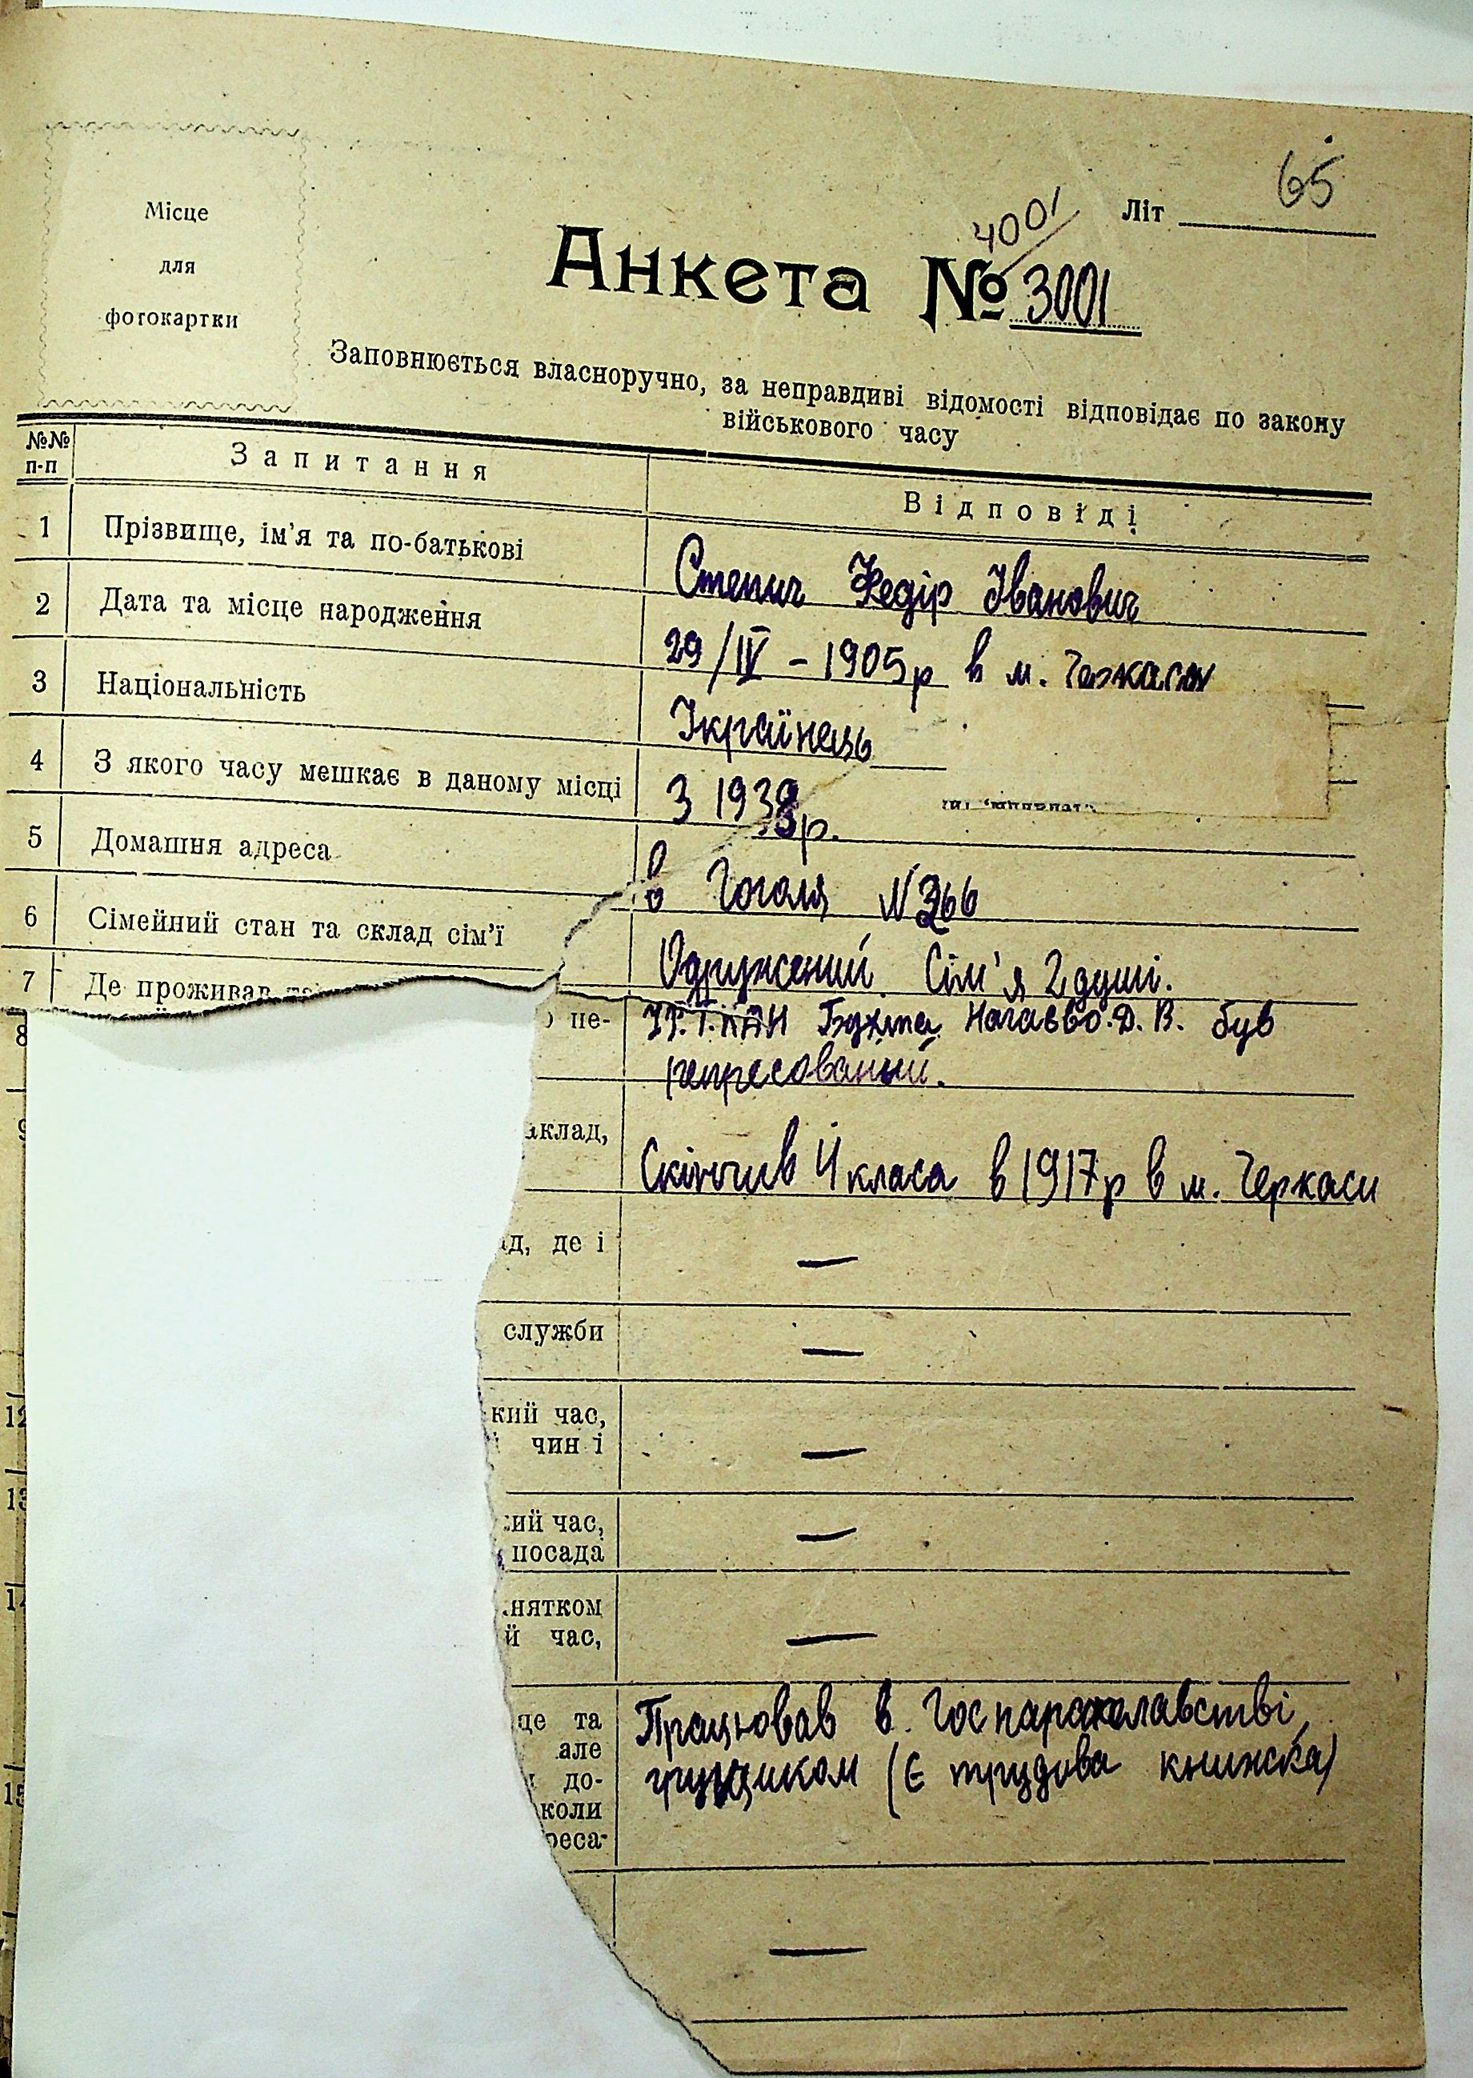 65
Літ
4001
Анкета № 3001
Місце
для
фотокартки
Заповнюється власноручно, за неправдиві відомості відповідає по закону
військового часу
№№ п-п Запитання Відповіді
1 Прізвище, ім'я та по-батькові Степич Федір Іванович
2 Дата та місце народження 29/IV – 1905р в м. Черкасах
3 Національність Українець
4 З якого часу мешкає в даному місці З 1938р.
5 Домашня адреса в Гоголя №266
6 Сімейний стан та склад сім'ї Одружений. Сім'я 2 душі.
7 Де проживав
8 пе- Д. В. був
репресований.
9 аклад, Скінчив 4 класа в 1917р в м. Черкаси
ад, де і —
служби —
12 кий час, —
чин і
13 кий час, —
посада
14 нятком —
й час,
15 це та Працював в
але грущиком (Є трудова книжка)
до-
коли
реса-
—